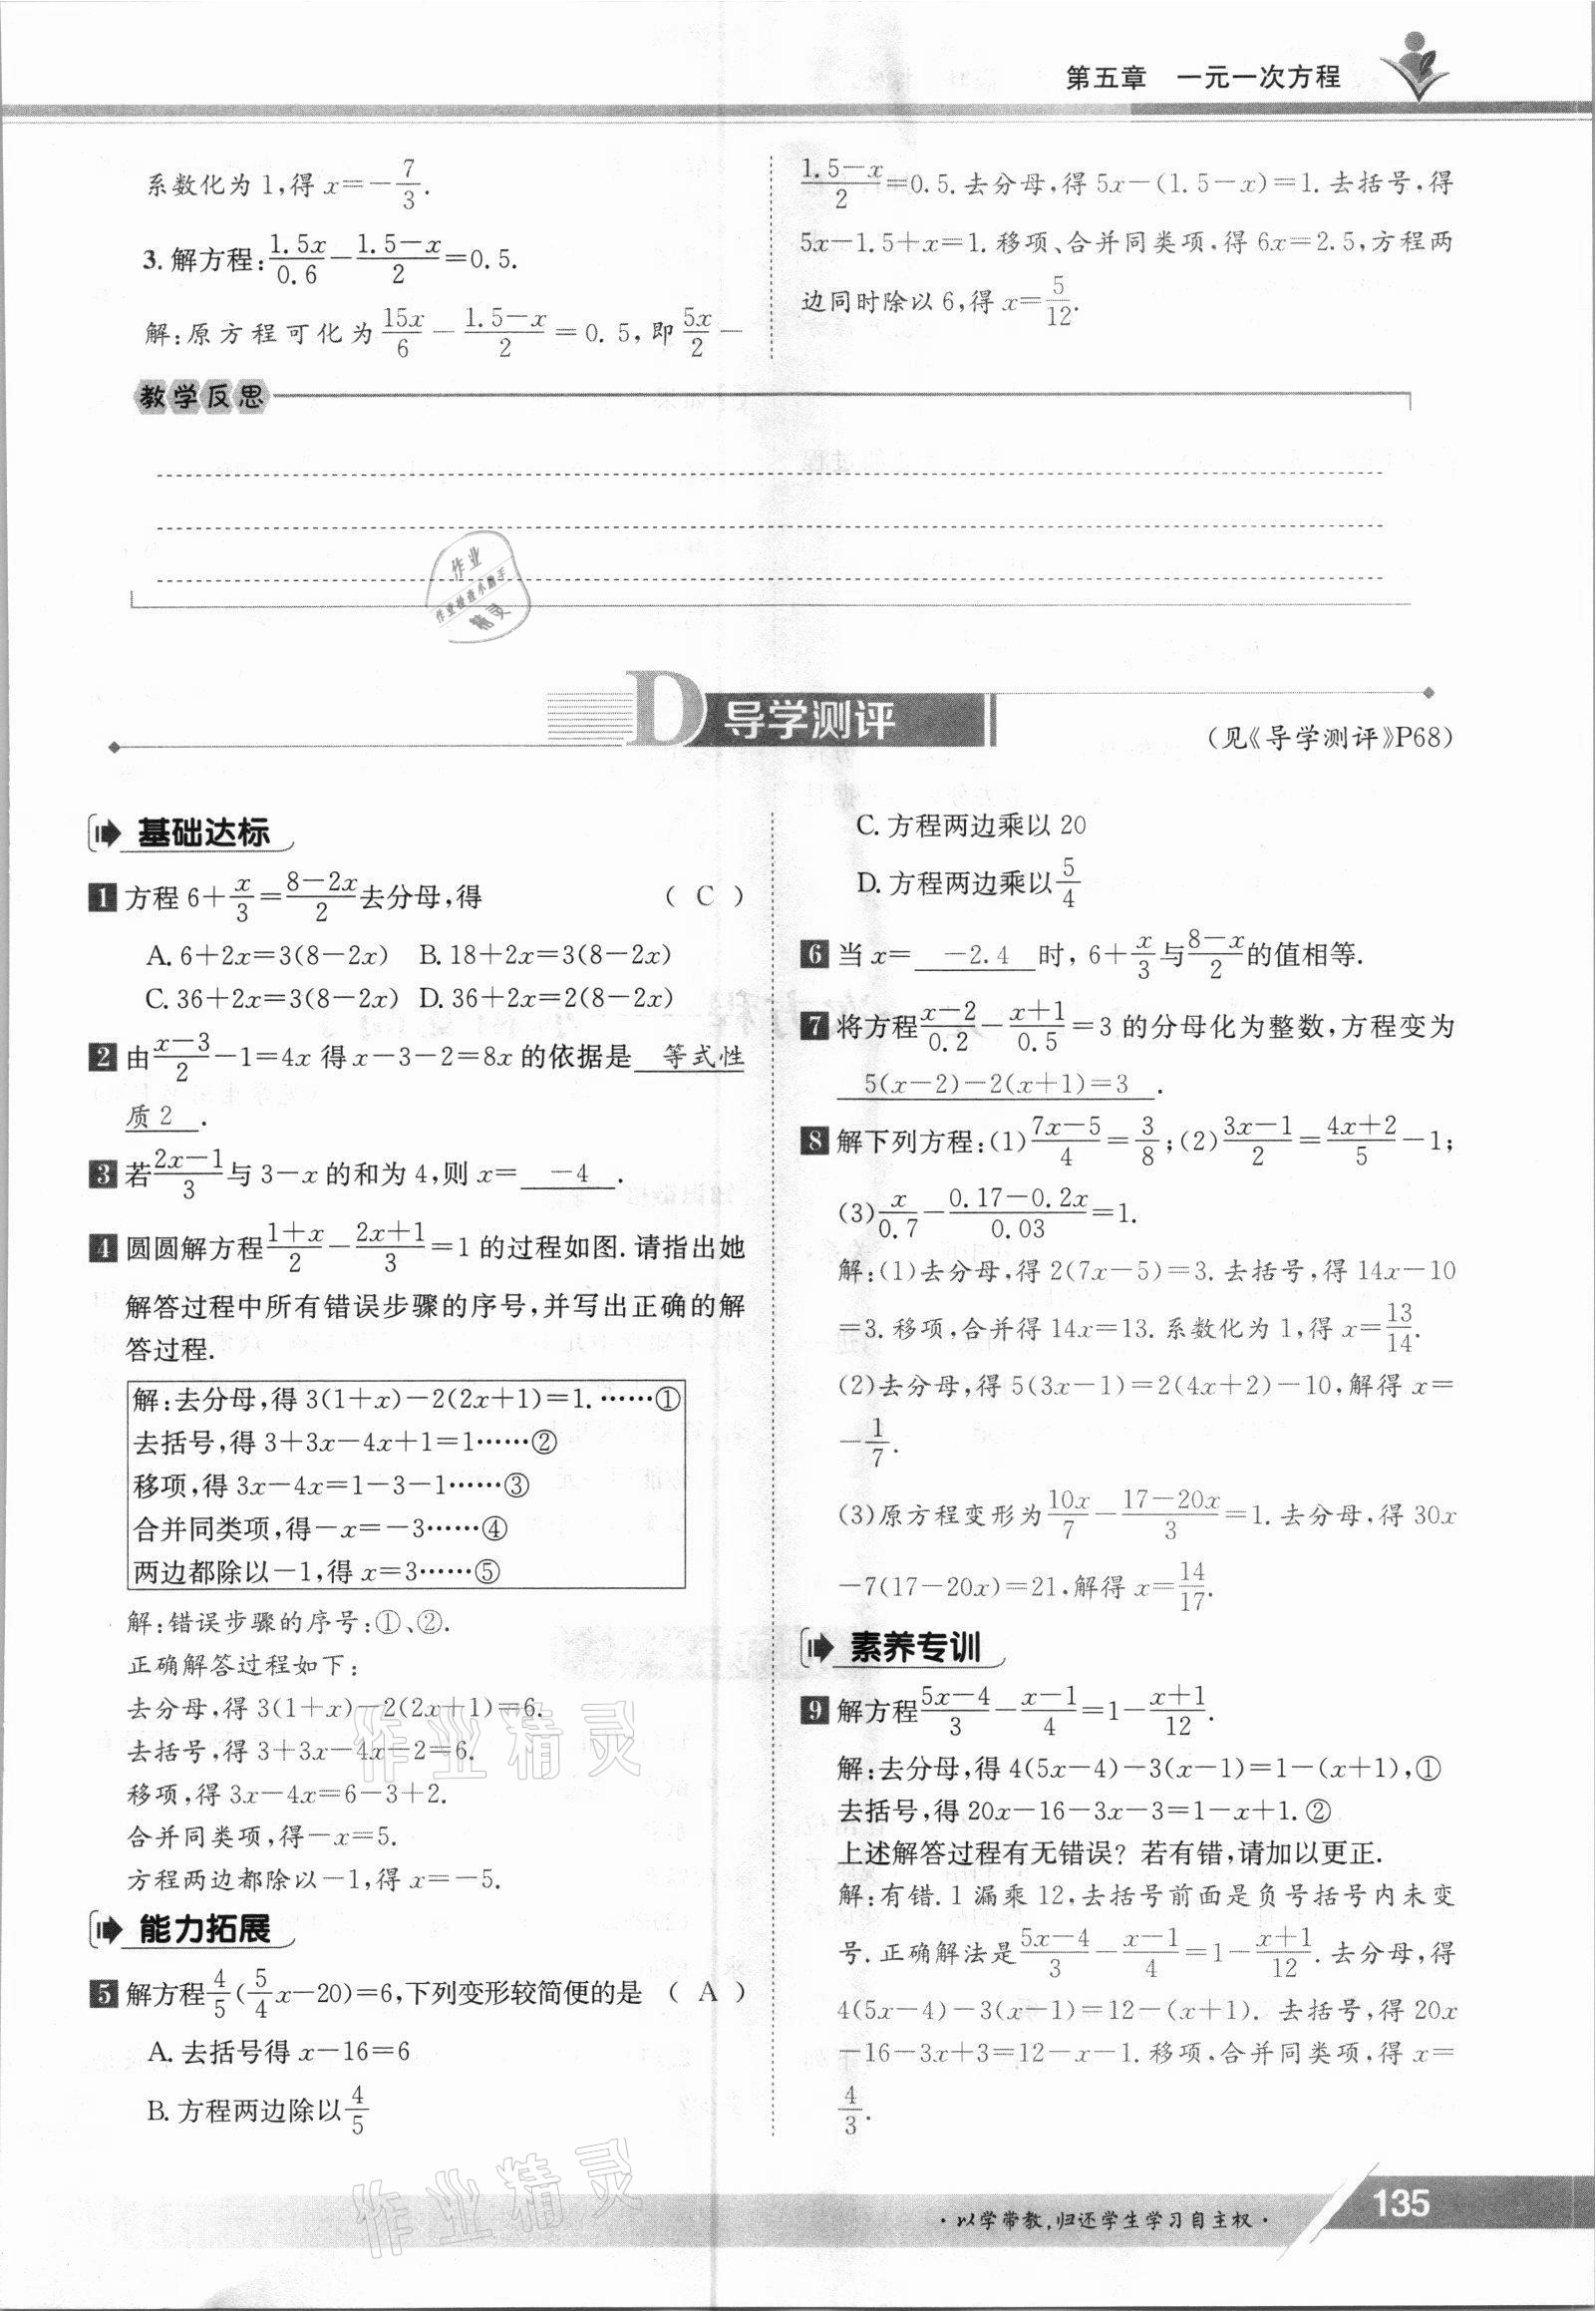 第五章　一元一次方程
系数化为1,得 x=-7/3.
3.解方程:1.5x/0.6-(1.5-x)/2=0.5.
解:原方程可化为15x/6-(1.5-x)/2=0.5,即5x/2-
(1.5-x)/2=0.5.去分母,得5x-(1.5-x)=1.去括号,得
5x-1.5+x=1.移项、合并同类项,得6x=2.5,方程两
边同时除以6,得x=5/12.
教学反思
作业
作业检查小助手
精灵
D 导学测评
(见《导学测评》P68)
基础达标
1 方程6+x/3=(8-2x)/2去分母,得 ( C )
A.6+2x=3(8-2x) B.18+2x=3(8-2x)
C.36+2x=3(8-2x) D.36+2x=2(8-2x)
2 由(x-3)/2-1=4x得x-3-2=8x的依据是 等式性
质2 .
3 若(2x-1)/3与3-x的和为4,则x= -4 .
4 圆圆解方程(1+x)/2-(2x+1)/3=1的过程如图.请指出她
解答过程中所有错误步骤的序号,并写出正确的解
答过程.
解:去分母,得3(1+x)-2(2x+1)=1.……①
去括号,得3+3x-4x+1=1……②
移项,得3x-4x=1-3-1……③
合并同类项,得-x=-3……④
两边都除以-1,得x=3……⑤
解:错误步骤的序号:①、②.
正确解答过程如下:
去分母,得3(1+x)-2(2x+1)=6.
去括号,得3+3x-4x-2=6.
移项,得3x-4x=6-3+2.
合并同类项,得-x=5.
方程两边都除以-1,得x=-5.
能力拓展
5 解方程4/5(5/4x-20)=6,下列变形较简便的是 ( A )
A.去括号得x-16=6
B.方程两边除以4/5
C.方程两边乘以20
D.方程两边乘以5/4
6 当x= -2.4 时,6+x/3与(8-x)/2的值相等.
7 将方程(x-2)/0.2-(x+1)/0.5=3的分母化为整数,方程变为
5(x-2)-2(x+1)=3 .
8 解下列方程:(1)(7x-5)/4=3/8;(2)(3x-1)/2=(4x+2)/5-1;
(3)x/0.7-(0.17-0.2x)/0.03=1.
解:(1)去分母,得2(7x-5)=3.去括号,得14x-10
=3.移项,合并得14x=13.系数化为1,得x=13/14.
(2)去分母,得5(3x-1)=2(4x+2)-10,解得x=
-1/7.
(3)原方程变形为10x/7-(17-20x)/3=1.去分母,得30x
-7(17-20x)=21,解得x=14/17.
素养专训
9 解方程(5x-4)/3-(x-1)/4=1-(x+1)/12.
解:去分母,得4(5x-4)-3(x-1)=1-(x+1),①
去括号,得20x-16-3x-3=1-x+1.②
上述解答过程有无错误?若有错,请加以更正.
解:有错.1漏乘12,去括号前面是负号括号内未变
号.正确解法是(5x-4)/3-(x-1)/4=1-(x+1)/12.去分母,得
4(5x-4)-3(x-1)=12-(x+1).去括号,得20x
-16-3x+3=12-x-1.移项、合并同类项,得x=
4/3.
作业精灵
作业精灵
·以学带教,归还学生学习自主权·
135